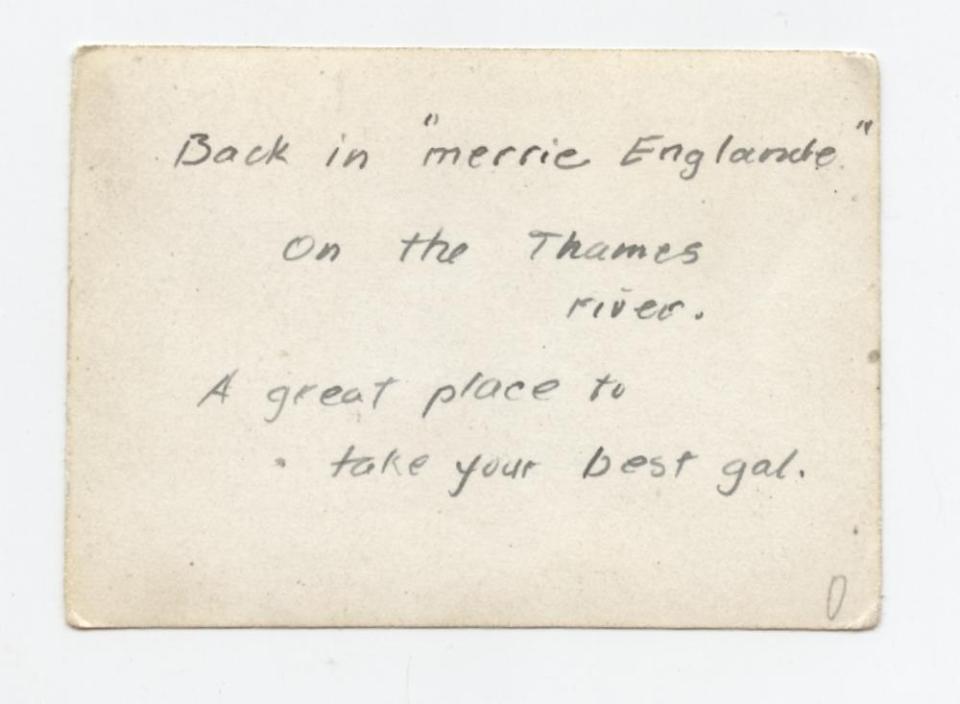 Back in "merrie Englande."
On the Thames
river.
A great place to
take your best gal.
0